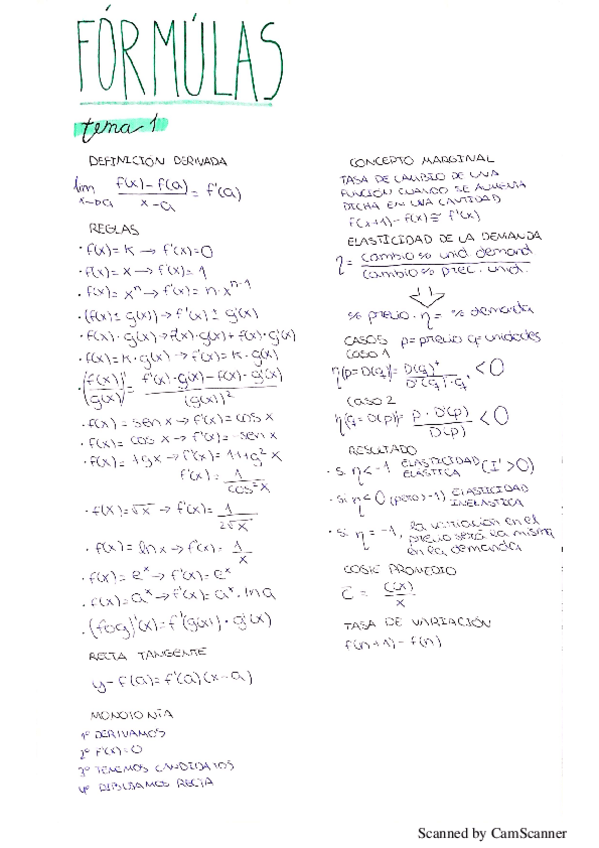 FÓRMULAS
tema 1
DEFINICIÓN DERIVADA
lim x→a f(x)-f(a) / x-a = f'(a)
REGLAS
· f(x)=k → f'(x)=0
· f(x)=x → f'(x)=1
· f(x)=xⁿ → f'(x)=n·xⁿ⁻¹
· (f(x)±g(x)) → f'(x)±g'(x)
· f(x)·g(x) → f'(x)·g(x)+f(x)·g'(x)
· f(x)=k·g(x) → f'(x)=k·g'(x)
· (f(x)/g(x))' = f'(x)·g(x)-f(x)·g'(x) / (g(x))²
· f(x)=sen x → f'(x)=cos x
· f(x)=cos x → f'(x)=-sen x
· f(x)=tg x → f'(x)=1+tg²x
f'(x)= 1/cos²x
· f(x)=√x → f'(x)= 1/2√x
· f(x)=ln x → f'(x)= 1/x
· f(x)=eˣ → f'(x)=eˣ
· f(x)=aˣ → f'(x)=aˣ·ln a
· (fog)'(x)=f'(g(x))·g'(x)
RECTA TANGENTE
y-f(a)=f'(a)(x-a)
MONOTONÍA
1º DERIVAMOS
2º f'(x)=0
3º TENEMOS CANDIDATOS
4º DIBUJAMOS RECTA
CONCEPTO MARGINAL
TASA DE CAMBIO DE UNA
FUNCIÓN CUANDO SE AUMENTA
DICHA EN UNA CANTIDAD
f(x+1)-f(x)≅f'(x)
ELASTICIDAD DE LA DEMANDA
η = cambio % unid. demand / cambio % prec. unid.
% precio · η = % demanda
CASOS p=precio q=unidades
CASO 1
η(p=D(q))= D(q) / D'(q)·q <0
CASO 2
η(q=D(p))= p·D'(p) / D(p) <0
RESULTADO
· si η<-1 ELASTICIDAD
ELÁSTICA (I'>0)
· si η<0 (pero >-1) ELASTICIDAD
INELÁSTICA
· si η=-1, la variación en el
precio será la misma
en la demanda
COSTE PROMEDIO
C̄ = C(x) / x
TASA DE VARIACIÓN
f(n+1)-f(n)
Scanned by CamScanner